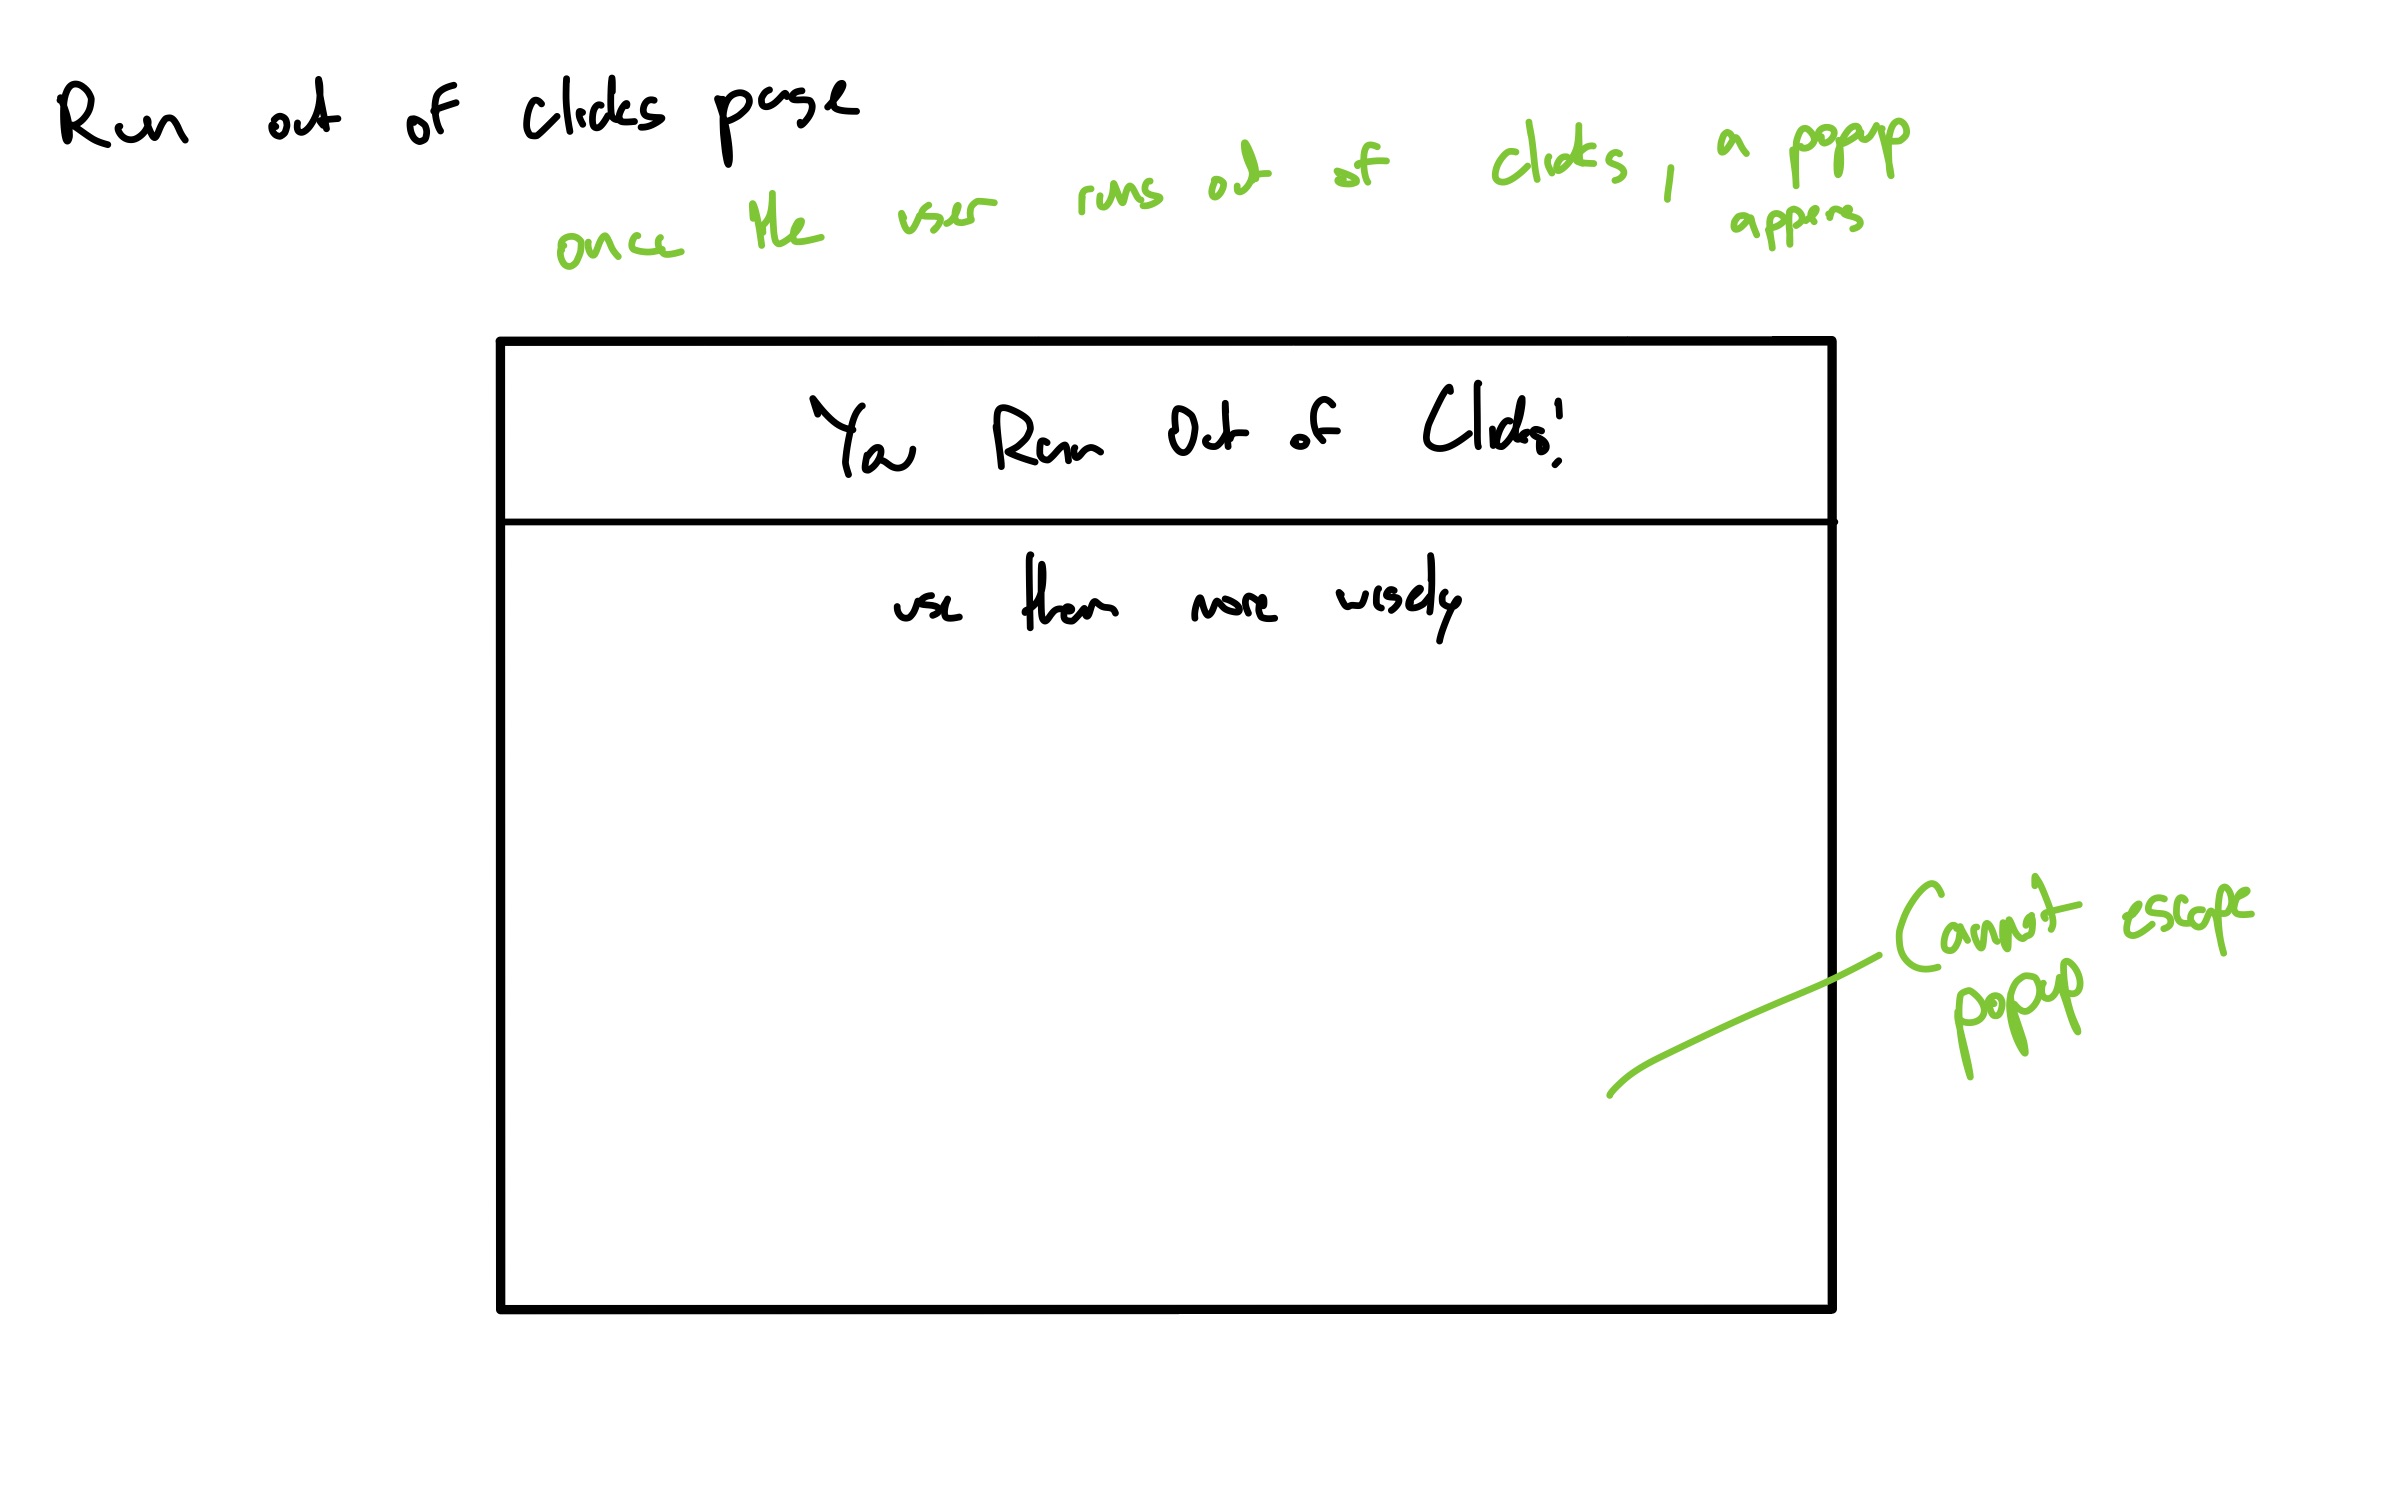 Run out of clicks page
once the user runs out of clicks, a popup
appears
You Ran Out of Clicks!
use them more wisely
Cannot escape
popup